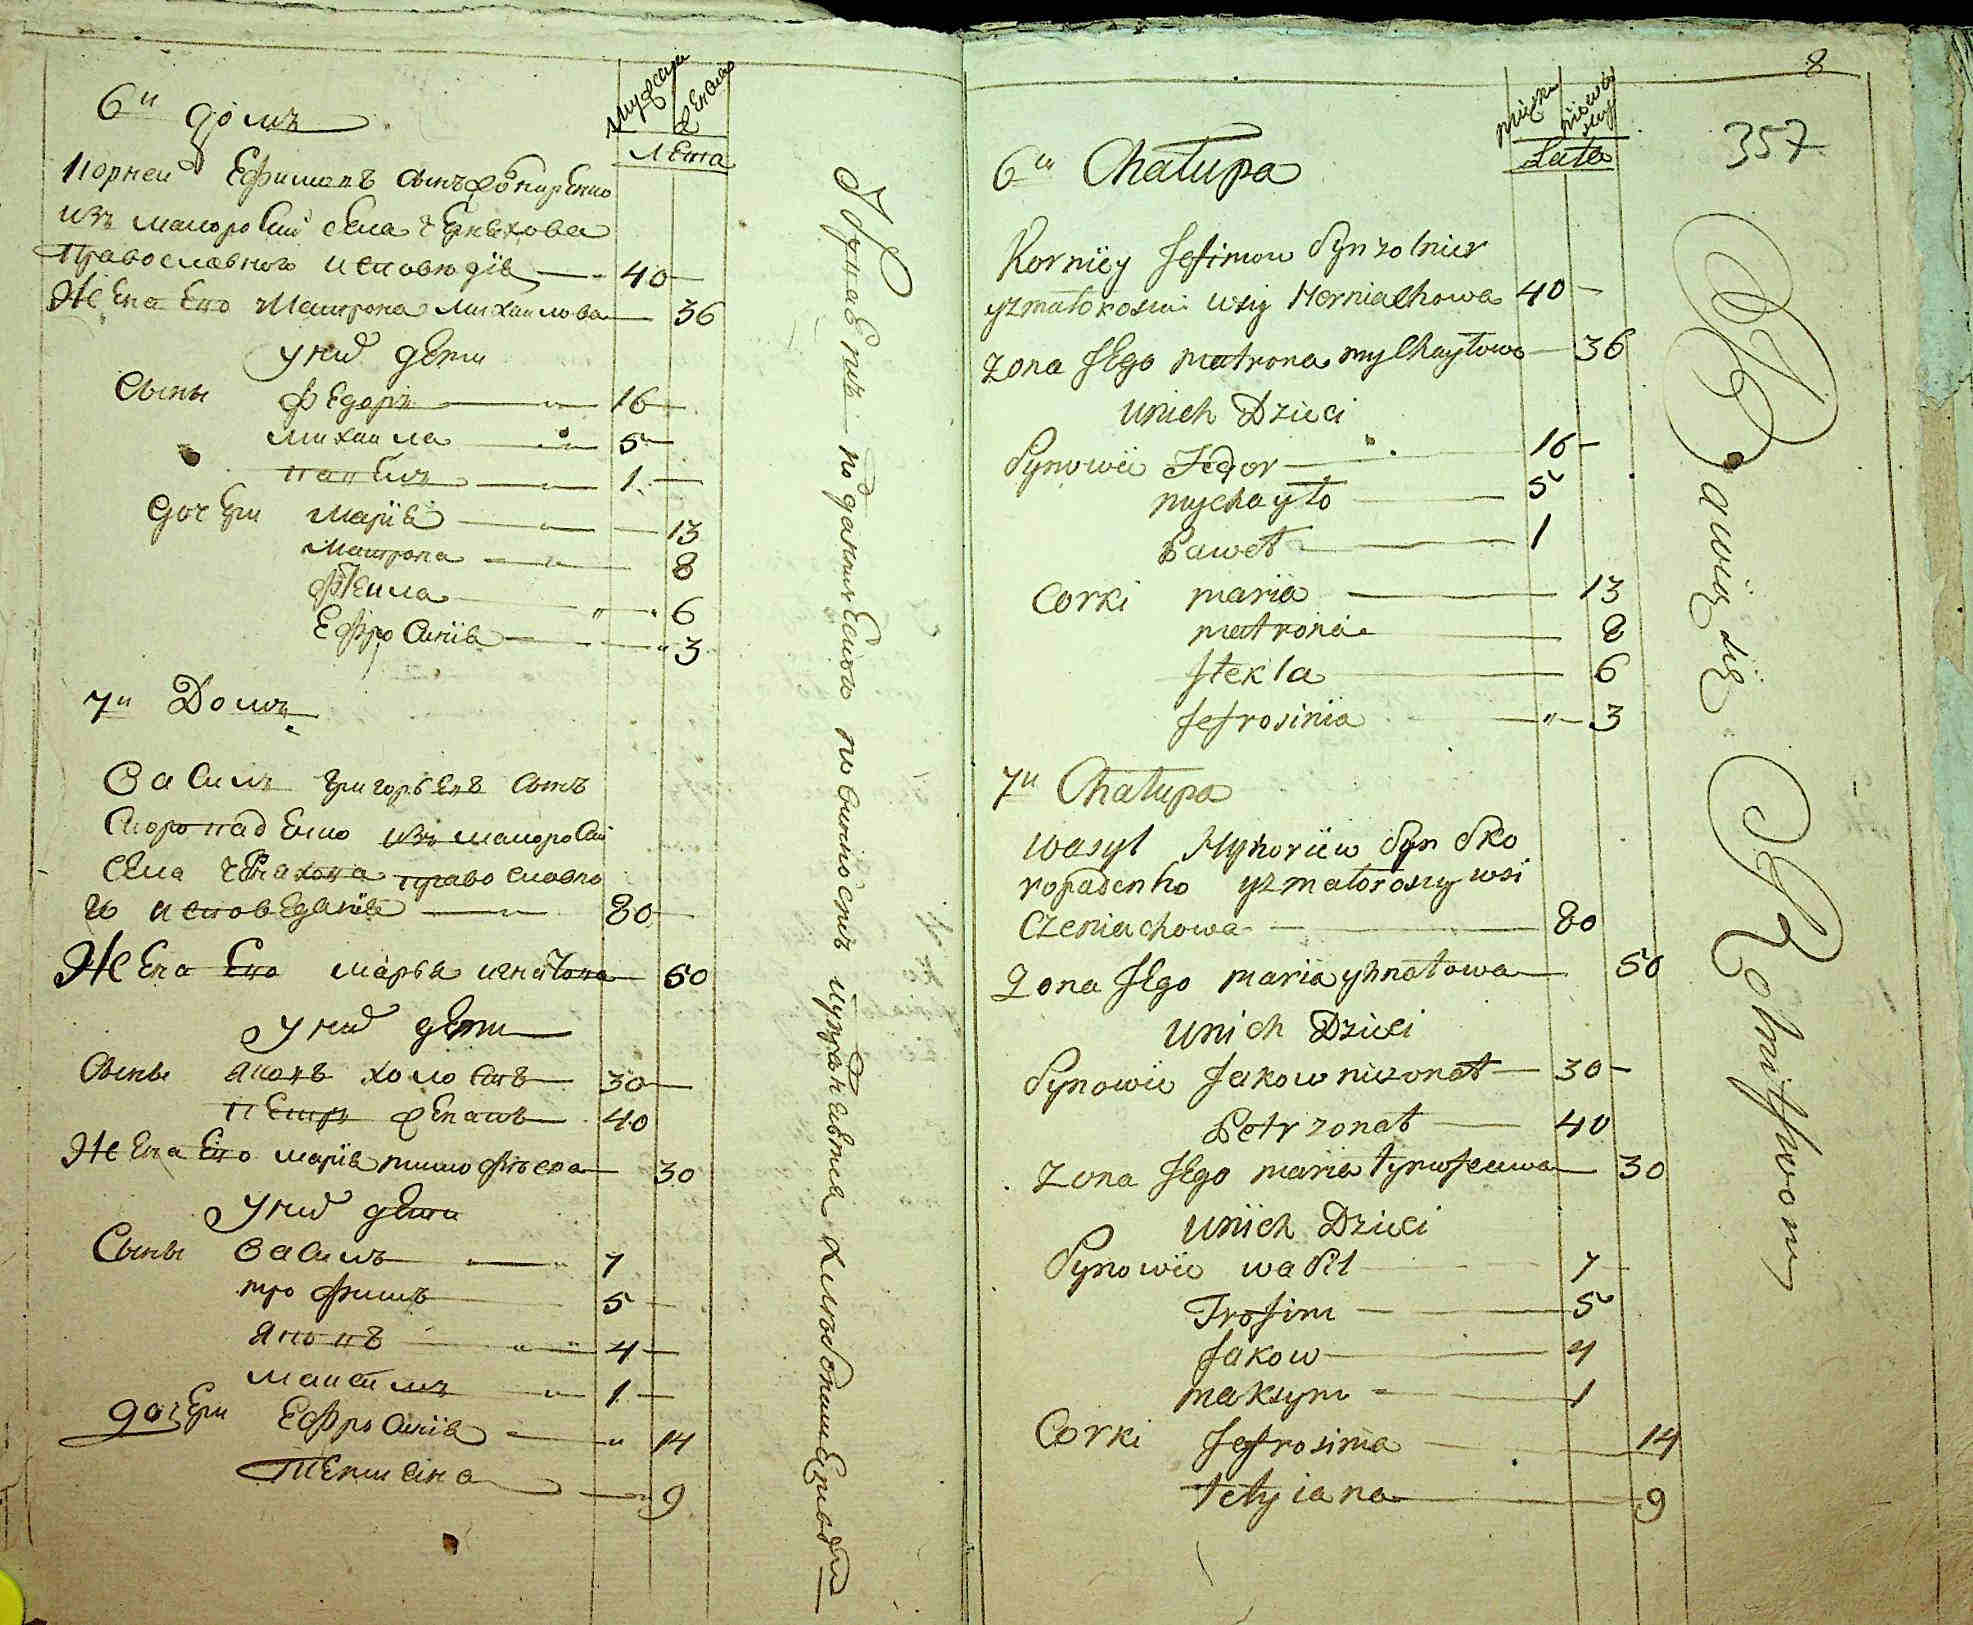 6й домъ
мужска женска
Лета
Корней Ефимовъ сынъ
изъ малоросии села Черняхова
православного исповедія — 40 —
Жена Его Матрона Михаилова — 36
у них дети
Сыны Федоръ — 16 —
Михаила — 5 —
Павелъ — 1 —
дочери Марія — 13
Матрона — 8
Фекла — 6
Ефросинія — 3
7й Домъ
Василъ Григорьевъ сынъ
Скоропаденко изъ малоросии
села Черяхова православно
го исповеданія — 80 —
Жена Его Марья Игнатова — 50
у них дети
Сыны Яковъ холостъ — 30 —
Петръ женатъ — 40
Жена Его Марія Тимофѣева — 30
у них дети
Сыны Василъ — 7
Трофимъ — 5 —
Яковъ — 4 —
Максимъ — 1 —
дочери Ефросинія — 14
Тетияна — 9
подданическою повинность
8
357
męska niewieś
Lata
6ta Chałupa
Korniey Jefimow Syn żolnier
yz małorosii wsiy Herniachowa 40 —
Zona Jego Matrona Mychayłowa — 36
U nich Dzieci
Synowie Fedor — 16 —
Mychayło — 5
Paweł — 1
Corki Maria — 13
Matrona — 8
Ftekla — 6
Jefrosinia — 3
7ma Chałupa
Wasyl Hyhoriiw Syn Sko
ropadenko yz małorosiy wsi
Czerniachowa — 80
Zona Jego Maria yhnatowa — 50
U nich Dzieci
Synowie Jakow niezonat — 30 —
Petr zonat — 40
Zona Jego Maria tymofeiwa — 30
U nich Dzieci
Synowie Wasil — 7
Trofim — 5
Jakow — 4
Maksym — 1
Corki Jefrosinia — 14
Tetyiana — 9
Bawią się Rolnictwom